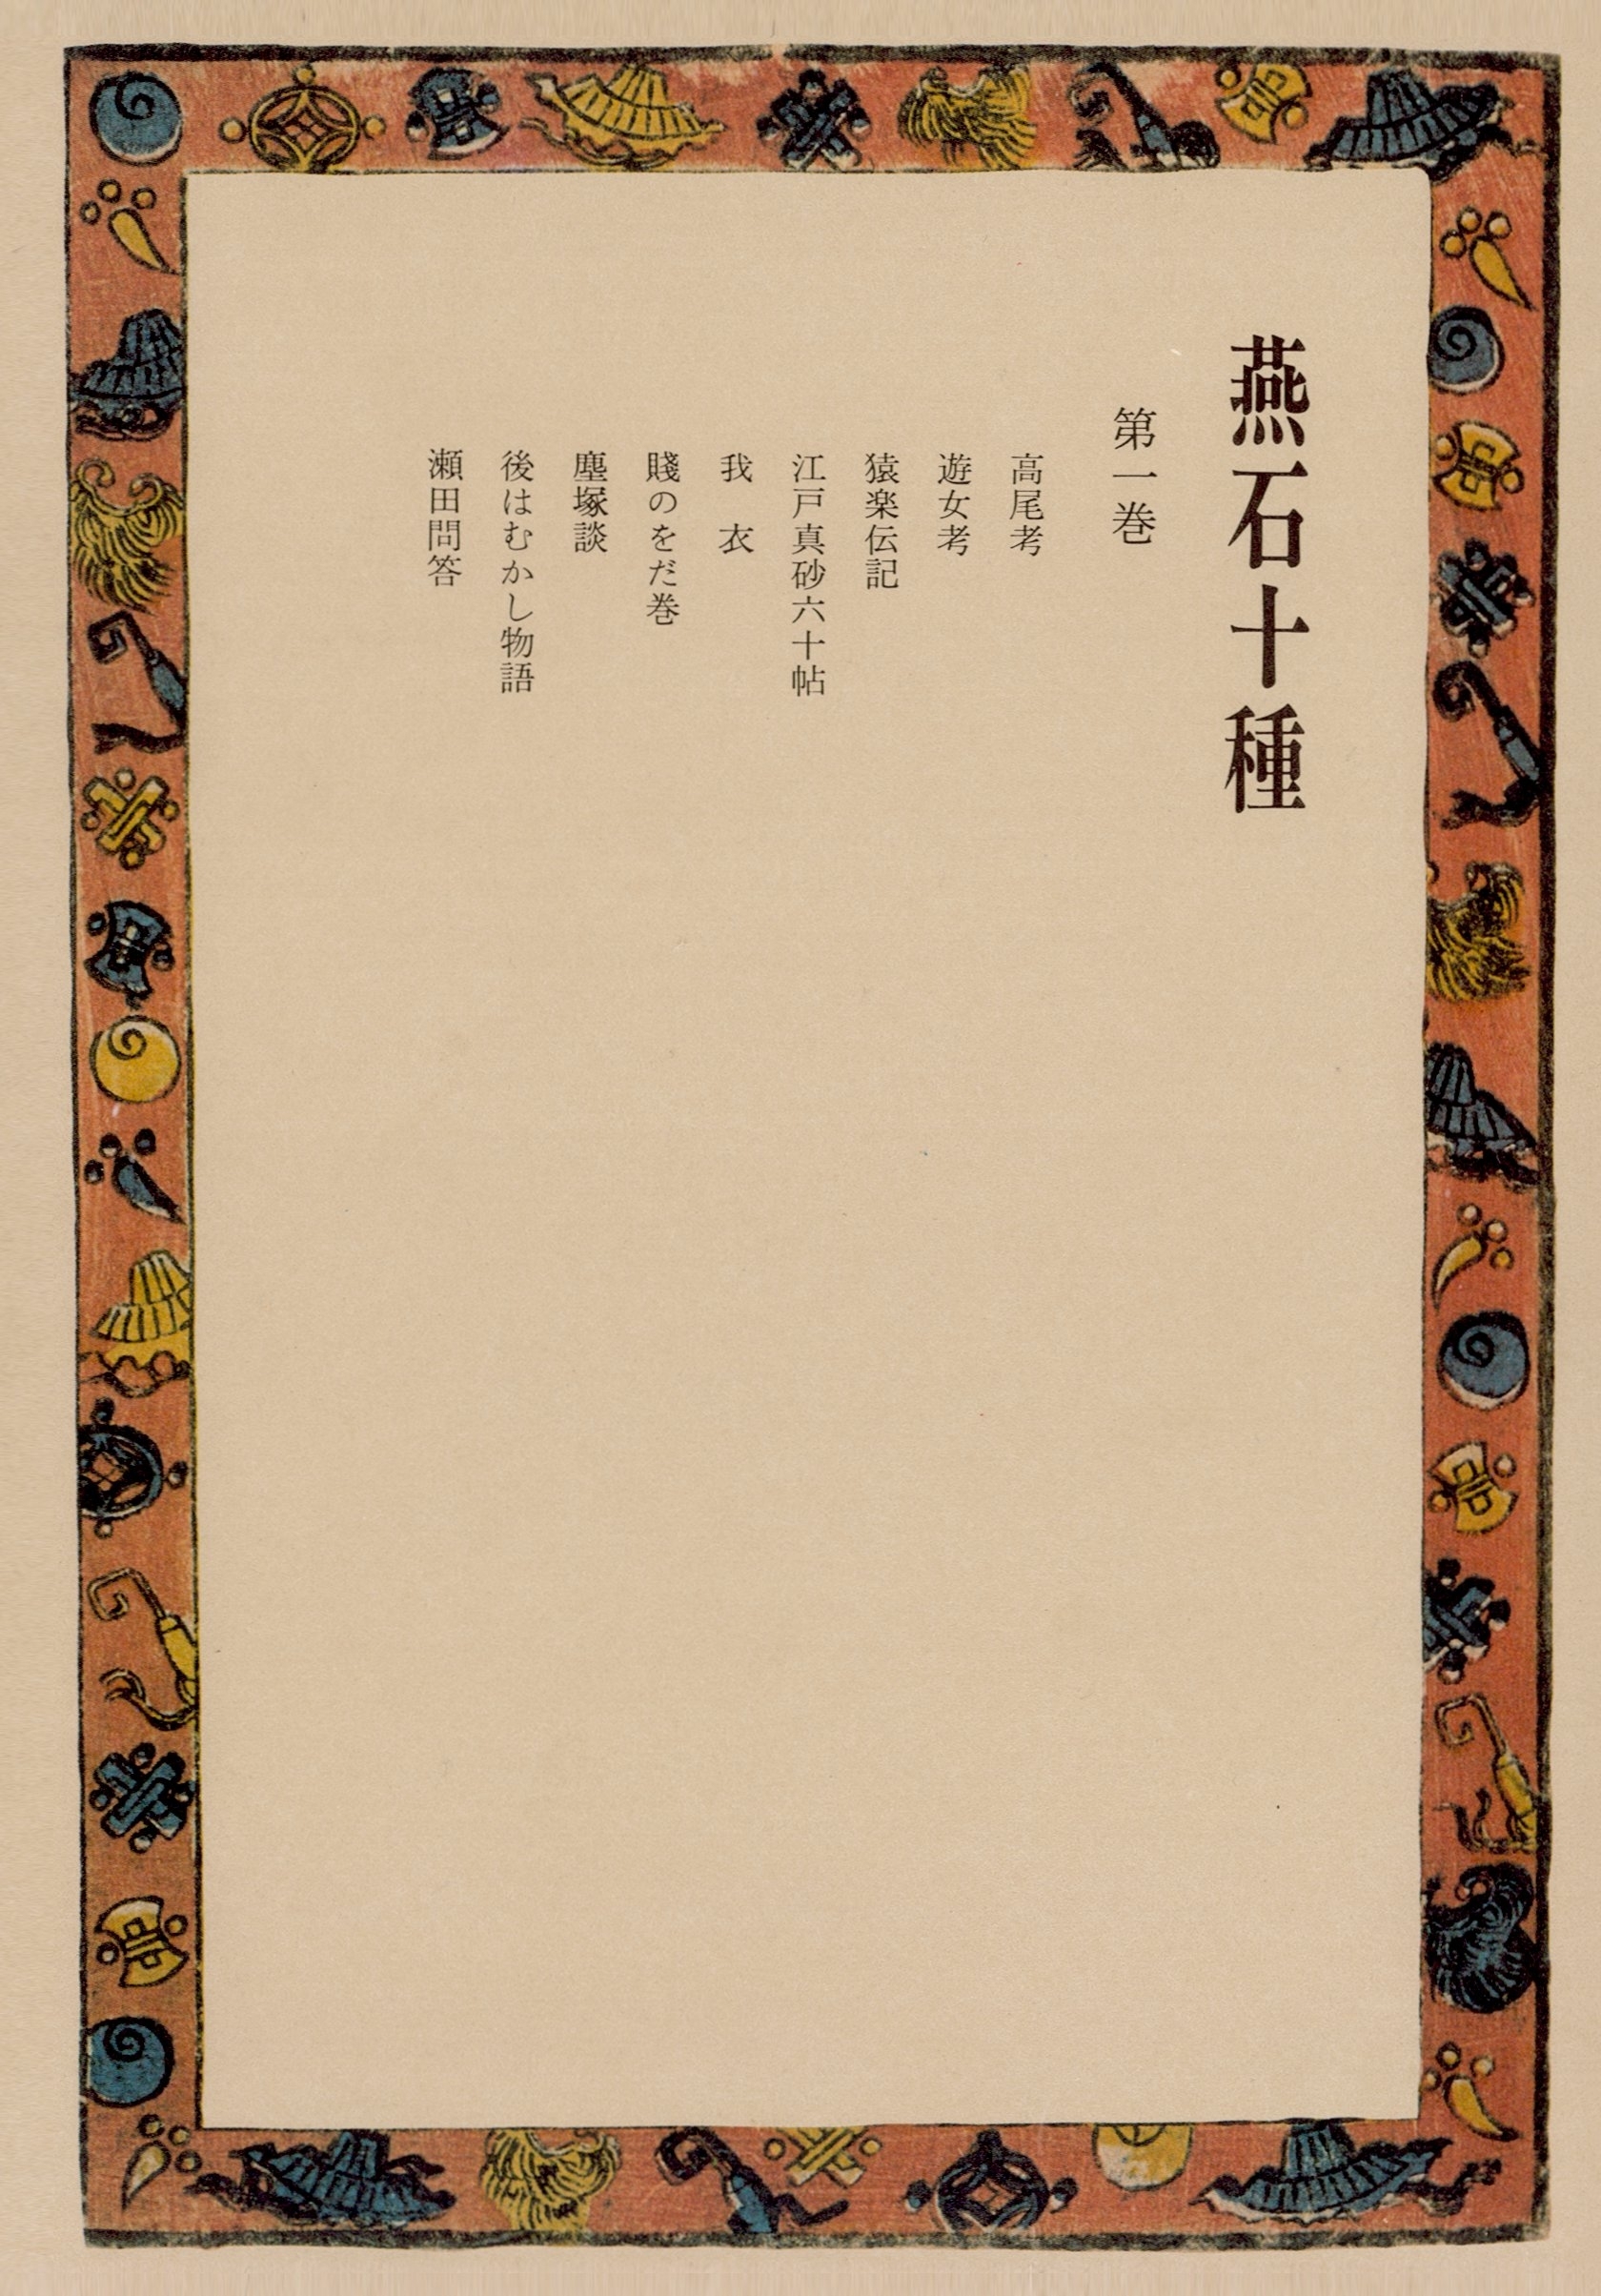 燕石十種
第一巻
高尾考
遊女考
猿楽伝記
江戸真砂六十帖
我　衣
賤のをだ巻
塵塚談
後はむかし物語
瀬田問答